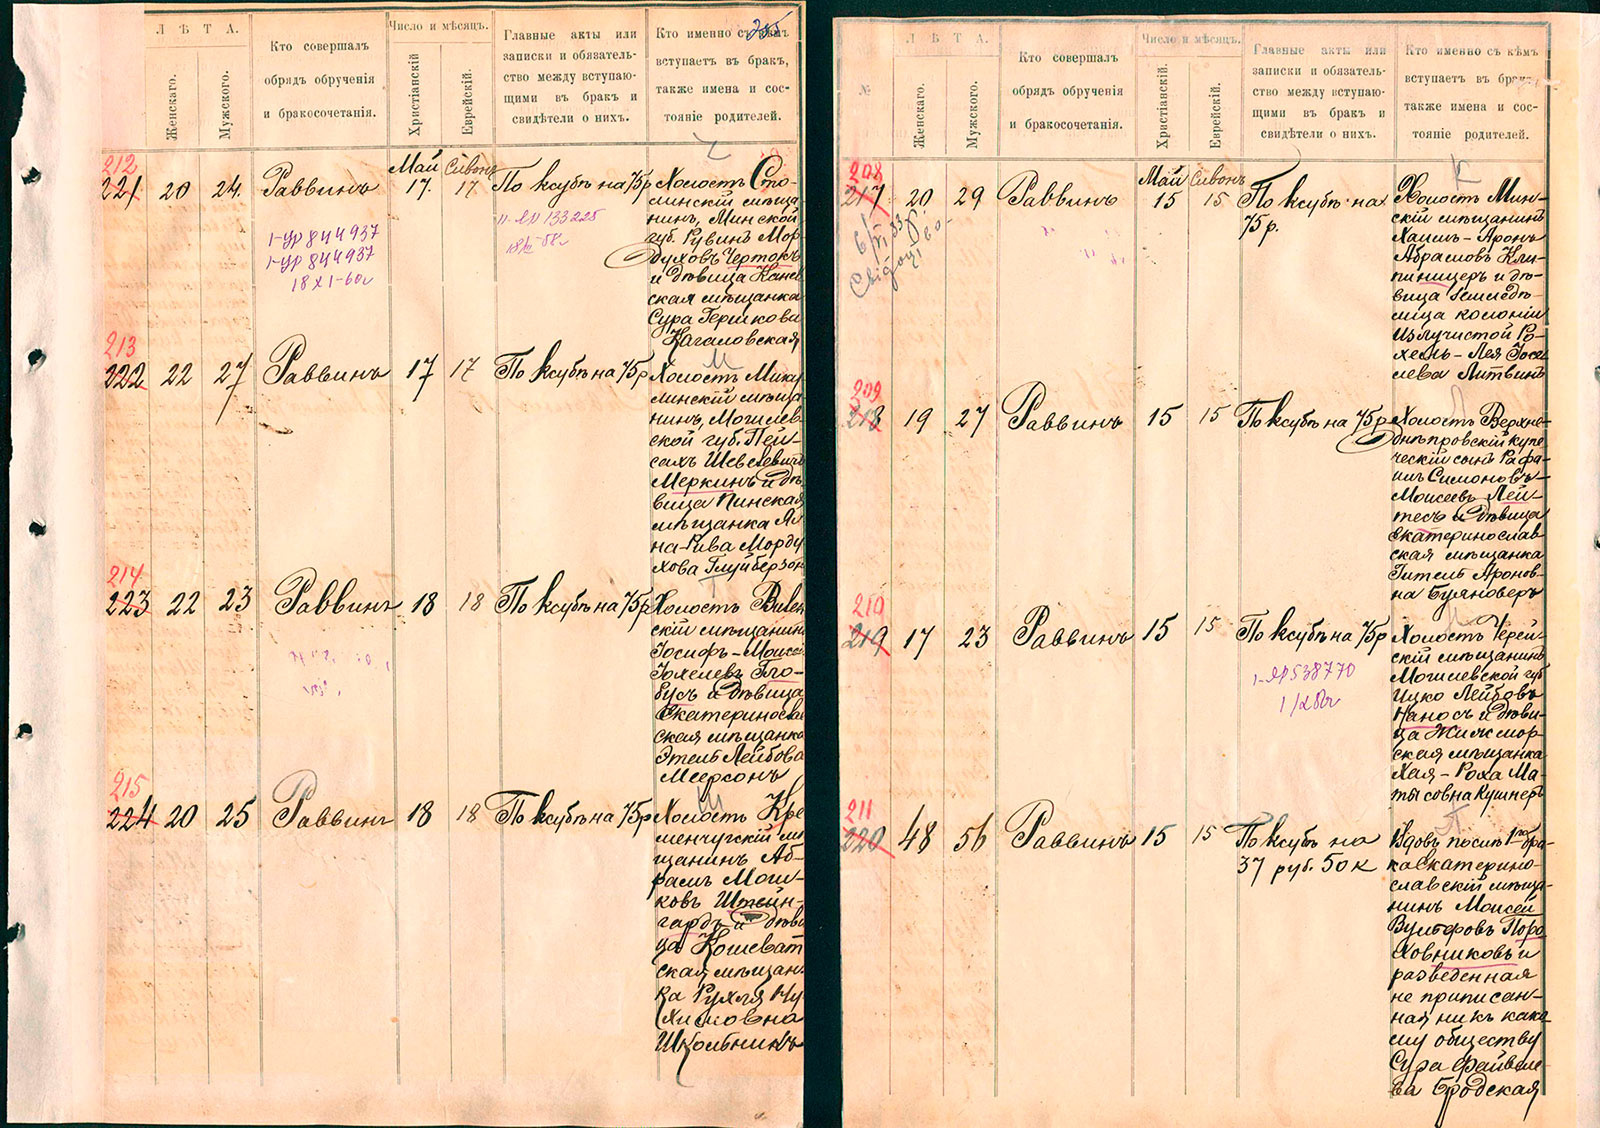 255
Л Ѣ Т А.
Женскаго.
Мужского.
Кто совершалъ
обрядъ обрученія
и бракосочетанія.
Число и мѣсяцъ.
Христіанскій
Еврейскій.
Главные акты или
записки и обязатель-
ство между вступаю-
щими въ бракъ и
свидѣтели о нихъ.
Кто именно съ кѣмъ
вступаетъ въ бракъ,
также имена и сос-
тояніе родителей.
212
221 20 24. Раввинъ Май 17. Сивонъ 17 По ксубѣ на 75р
1-УР 844937
1-УР 844937
18 XI-60г
133225
Холостъ Сто-
линскій мѣща
нинъ, Минской
губ. Рувинъ Мор
духовъ Чертокъ
и дѣвица Канев
ская мѣщанка
Сура Гершкова
Кагаловская
213
222 22 27 Раввинъ 17 17 По ксубѣ на 75р
Холостъ Мику
линскій мѣща
нинъ, Могилев
ской губ. Пей-
сахъ Шевелевичъ
Меркинъ и дѣ
вица Пинская
мѣщанка
на-Рива Морду
хова Глуйберзон
214
223 22 23 Раввинъ 18 18 По ксубѣ на 75р
Холостъ Вилен
скій мѣщанинъ
Іосифъ-Моисей
Іохелевъ Гло-
бусъ и дѣвица
Екатеринослав
ская мѣщанка
Этель Лейбова
Меерсонъ
215
224 20 25 Раввинъ 18 18 По ксубѣ на 75р
Ш
Холостъ Кре
менчугскій мѣ
щанинъ Аб-
рамъ Мош-
ковъ Штейн-
гардъ и дѣви
ца Кошеват
ская мѣщан-
ка Рухля Ну
химовна
Школьникъ
№
Л Ѣ Т А.
Женскаго.
Мужского.
Кто совершалъ
обрядъ обрученія
и бракосочетанія.
Число и мѣсяцъ.
Христіанскій.
Еврейскій.
Главные акты или
записки и обязатель-
ство между вступаю-
щими въ бракъ и
свидѣтели о нихъ.
Кто именно съ кѣмъ
вступаетъ въ бракъ
также имена и сос-
тояніе родителей.
208
217 20 29 Раввинъ Май 15 Сивонъ 15 По ксубѣ на
75 р.
6/VI 33 р.
К
Холостъ Мин-
скій мѣщанинъ
Хаимъ-Аронъ
Абрамовъ Кли-
пиницеръ и дѣ-
вица земледѣ-
лица колоніи
Излучистой Ро-
хель-Лея Іосе
лева Литвинъ
209
218 19 27 Раввинъ 15 15 По ксубѣ на 75р
Л
Холостъ Верхне-
днѣпровскій купе
ческій сынъ Рафа-
илъ Симоновъ-
Моисеевъ Лей-
тесъ и дѣвица
Екатеринослав
ская мѣщанка
Гитель Аронов-
на Буяноверъ
210
219 17 23 Раввинъ 15 15 По ксубѣ на 75р
538770
Холостъ Черей-
скій мѣщанинъ
Могилевской губ
Ицко Лейбовъ
Наносъ и дѣви-
ца Жижмор-
ская мѣщанка
Хая-Роха Ма-
тысовна Кушнеръ
211
220 48 56 Раввинъ 15 15 По ксубѣ на
37 руб. 50 к
П
Вдовъ послѣ 1го бра-
ка Екатерино-
славскій мѣща-
нинъ Моисей
Вульфовъ Поро
ховниковъ и
разведенная
не приписан-
ная ни къ како
му обществу
Сура Файвеле
ва Бродская